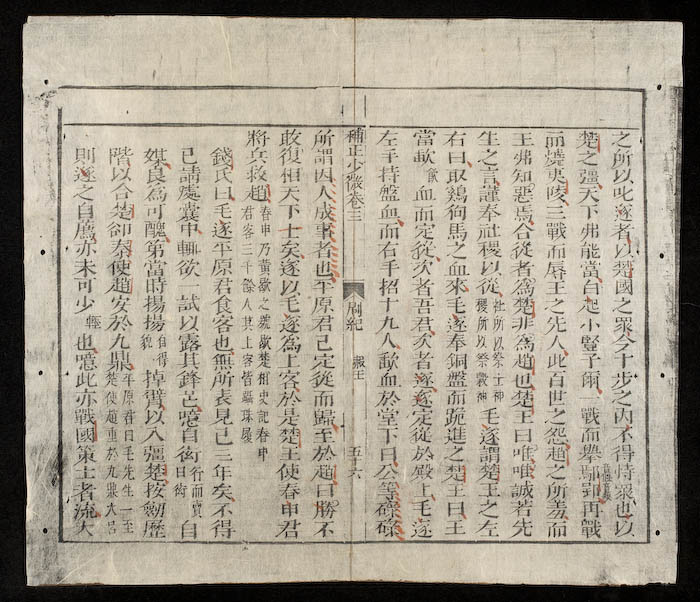 之所以叱遂者以楚國之眾今十步之內不得恃眾也以
楚之彊天下弗能當白起小豎子爾一戰而舉鄢郢再戰
而燒夷陵三戰而辱王之先人此百世之怨趙之所羞而
王弗知惡焉合從者為楚非為趙也楚王曰唯唯誠若先
生之言謹奉社稷以從社所以祭土神稷所以祭穀神毛遂謂楚王之左
右曰取鷄狗馬之血來毛遂奉銅盤而跪進之楚王曰王
當歃血而定從次者吾君次者遂遂定從於殿上毛遂
左手持盤血而右手招十九人歃血於堂下曰公等碌碌
補正少微卷三 周紀 赧王 五十六
所謂因人成事者也平原君已定從而歸至於趙曰勝不
敢復相天下士矣遂以毛遂為上客於是楚王使春申君
將兵救趙春申乃黃歇之號歇楚相史記春申君客三千餘人其上客皆躡珠履
錢氏曰毛遂平原君食客也無所表見已三年矣不得
已請處囊中輒欲一試以露其鋒芒噫自衒行而賣曰衒自
媒良為可醜第當時揚揚自得貌掉臂以入彊楚按劍歷
階以合楚卻秦使趙安於九鼎平原君曰毛先生一至楚使趙重於九鼎大呂
則遂之自薦亦未可少輕也噫此亦戰國策士者流大